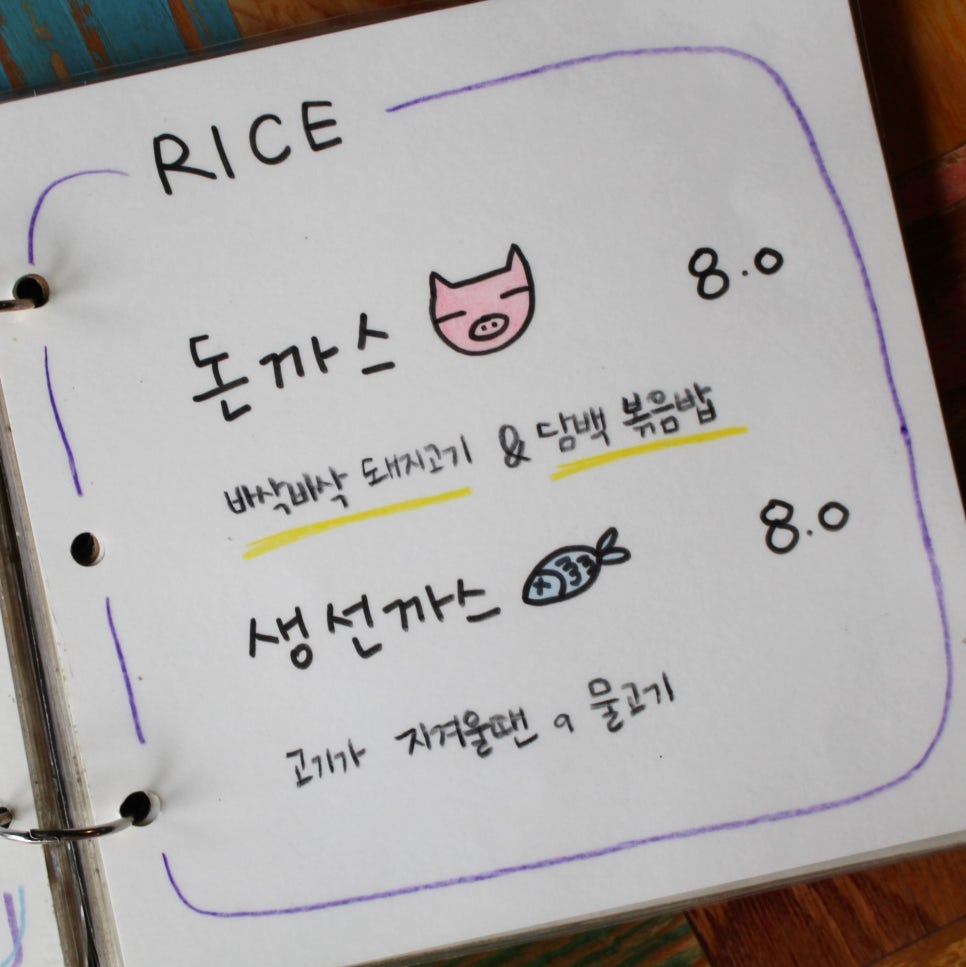 RICE
돈까스 8.0
바삭바삭 돼지고기 & 담백 볶음밥
생선까스 8.0
고기가 지겨울땐, 물고기